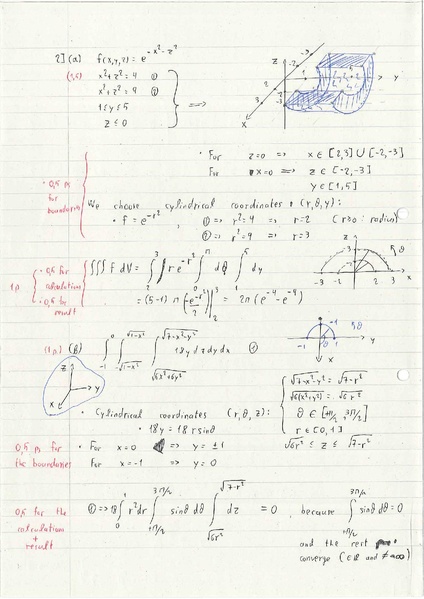 2] (a) f(x,y,z) = e^{-x²-z²}
x²+z² = 4 ①
x²+z² = 9 ②
1 ≤ y ≤ 5
z ≤ 0
=>
z
y
x
• For z=0 => x ∈ [2,3] ∪ [-2,-3]
For x=0 => z ∈ [-2,-3]
y ∈ [1,5]
• 0,5 ps for boundaries
We choose cylindrical coordinates (r,θ,y):
• f = e^{-r²}, ① => r²=4 => r=2 (r≥0: radius)
② => r²=9 => r=3
1p
• 0,5 for calculation
• 0,5 for result
∭ F dV = ∫_2^3 r e^{-r²} ∫_0^π dθ ∫_1^5 dy
= (5-1) π (e^{-r²}/-2)|_2^3 = 2π(e^{-4} - e^{-9})
z
θ
x
(1p) (β) ∫_{-1}^0 ∫_{-√1-x²}^{√1-x²} ∫_{√6x²+6y²}^{√7-x²-y²} 18y dz dy dx ①
-1
-1
1
θ
y
x
z
y
x
• Cylindrical coordinates (r,θ,z):
• 18y = 18 r sinθ
√7-x²-y² = √7-r²
√6(x²+y²) = √6r²
θ ∈ [π/2, 3π/2]
r ∈ [0,1]
√6r² ≤ z ≤ √7-r²
0,5 ps for the boundaries
• For x=0 => y = ±1
For x=-1 => y = 0
0,5 for the calculation + result
① => 18 ∫_0^1 r² dr ∫_{π/2}^{3π/2} sinθ dθ ∫_{√6r²}^{√7-r²} dz = 0, because ∫_{π/2}^{3π/2} sinθ dθ = 0
and the rest
converge (∈ ℝ and ≠ ±∞)